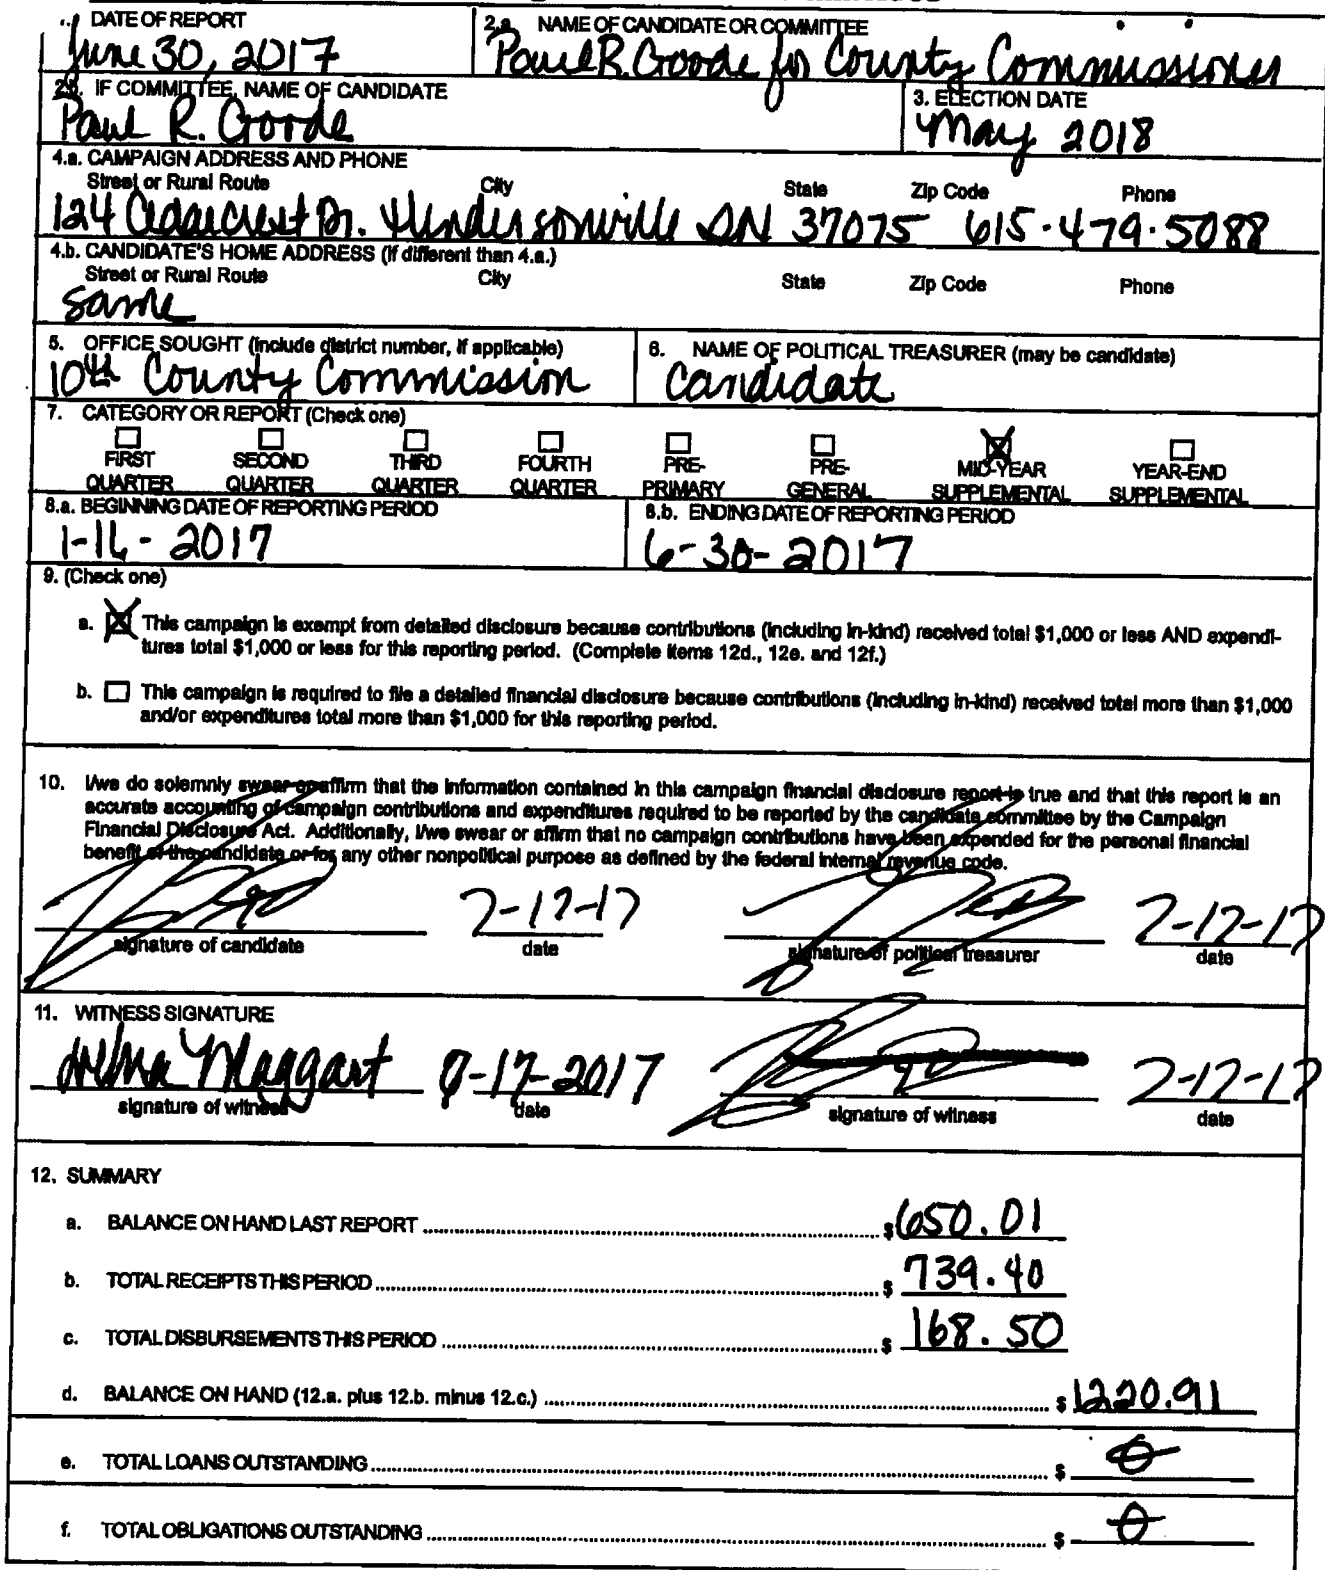 1. DATE OF REPORT
June 30, 2017
2.a. NAME OF CANDIDATE OR COMMITTEE
Paul R. Goode for County Commissioner
2.b. IF COMMITTEE, NAME OF CANDIDATE
Paul R. Goode
3. ELECTION DATE
May 2018
4.a. CAMPAIGN ADDRESS AND PHONE
Street or Rural Route City State Zip Code Phone
124 Dr. Hendersonville TN 37075 615-479-5088
4.b. CANDIDATE'S HOME ADDRESS (if different than 4.a.)
Street or Rural Route City State Zip Code Phone
same
5. OFFICE SOUGHT (include district number, if applicable)
10th County Commission
6. NAME OF POLITICAL TREASURER (may be candidate)
Candidate
7. CATEGORY OR REPORT (Check one)
FIRST QUARTER
SECOND QUARTER
THIRD QUARTER
FOURTH QUARTER
PRE-PRIMARY
PRE-GENERAL
MID-YEAR SUPPLEMENTAL
YEAR-END SUPPLEMENTAL
8.a. BEGINNING DATE OF REPORTING PERIOD
1-16-2017
8.b. ENDING DATE OF REPORTING PERIOD
6-30-2017
9. (Check one)
a. This campaign is exempt from detailed disclosure because contributions (including in-kind) received total $1,000 or less AND expendi-
tures total $1,000 or less for this reporting period. (Complete items 12d., 12e. and 12f.)
b. This campaign is required to file a detailed financial disclosure because contributions (including in-kind) received total more than $1,000
and/or expenditures total more than $1,000 for this reporting period.
10. I/we do solemnly swear or affirm that the information contained in this campaign financial disclosure report is true and that this report is an
accurate accounting of campaign contributions and expenditures required to be reported by the candidate committee by the Campaign
Financial Disclosure Act. Additionally, I/we swear or affirm that no campaign contributions have been expended for the personal financial
benefit of the candidate or for any other nonpolitical purpose as defined by the federal internal revenue code.
7-12-17 7-12-17
signature of candidate date signature of political treasurer date
11. WITNESS SIGNATURE
Maggart 7-12-17
signature of witness date signature of witness date
12. SUMMARY
a. BALANCE ON HAND LAST REPORT $ 650.01
b. TOTAL RECEIPTS THIS PERIOD $ 739.40
c. TOTAL DISBURSEMENTS THIS PERIOD $ 168.50
d. BALANCE ON HAND (12.a. plus 12.b. minus 12.c.) $ 1220.91
e. TOTAL LOANS OUTSTANDING $ 0
f. TOTAL OBLIGATIONS OUTSTANDING $ 0